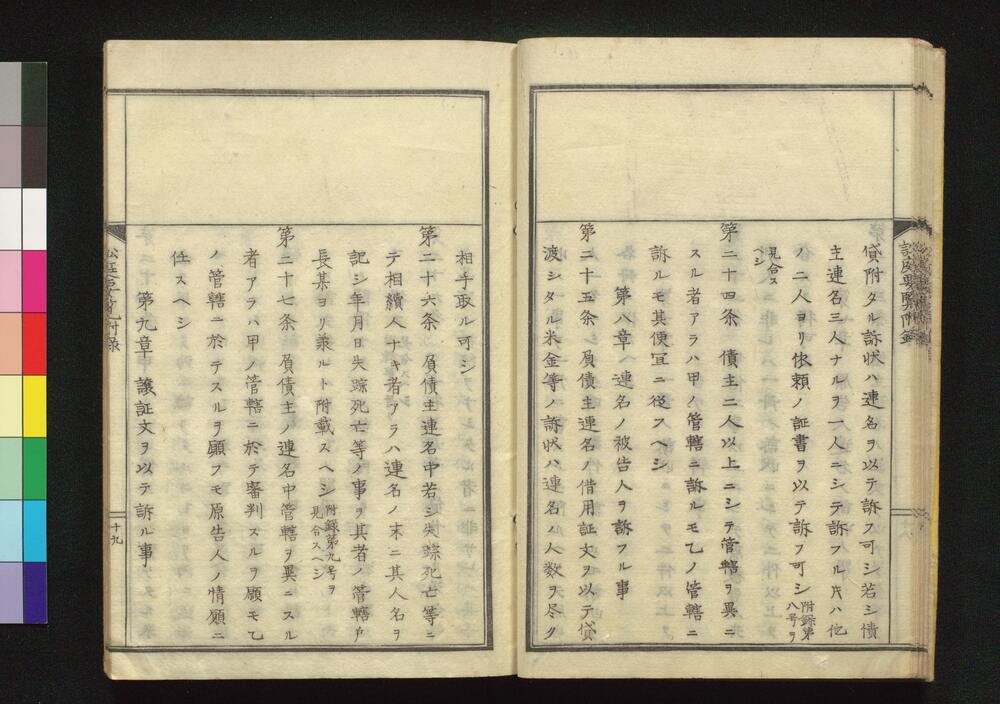 貸附タル訴状ハ連名ヲ以テ訴フ可シ若シ債
主連名三人ナルヲ一人ニシテ訴フル片ハ他
ノ二人ヨリ依頼ノ証書ヲ以テ訴フ可シ附録第八号ヲ
見合スヘシ
第二十四条 債主二人以上ニシテ管轄ヲ異ニ
スル者アラハ甲ノ管轄ニ訴ルモ乙ノ管轄ニ
訴ルモ其便宜ニ従フヘシ
第八章 連名ノ被告人ヲ訴フル事
第二十五条 負債主連名ノ借用証文ヲ以テ貸
渡シタル米金等ノ訴状ハ連名ノ人数ヲ尽ク
相手取ル可シ
第二十六条 負債主連名中若シ失踪死亡等ニ
テ相續人ナキ者アラハ連名ノ末ニ其人名ヲ
記シ年月日失踪死亡等ノ事ヲ其者ノ管轄戸
長某ヨリ承ルト附載スヘシ附録第九号ヲ見合スヘシ
第二十七条 負債主ノ連名中管轄ヲ異ニスル
者アラハ甲ノ管轄ニ於テ審判スルヲ願モ乙
ノ管轄ニ於テスルヲ願フモ原告人ノ情願ニ
任スヘシ
第九章 譲証文ヲ以テ訴ル事
十九